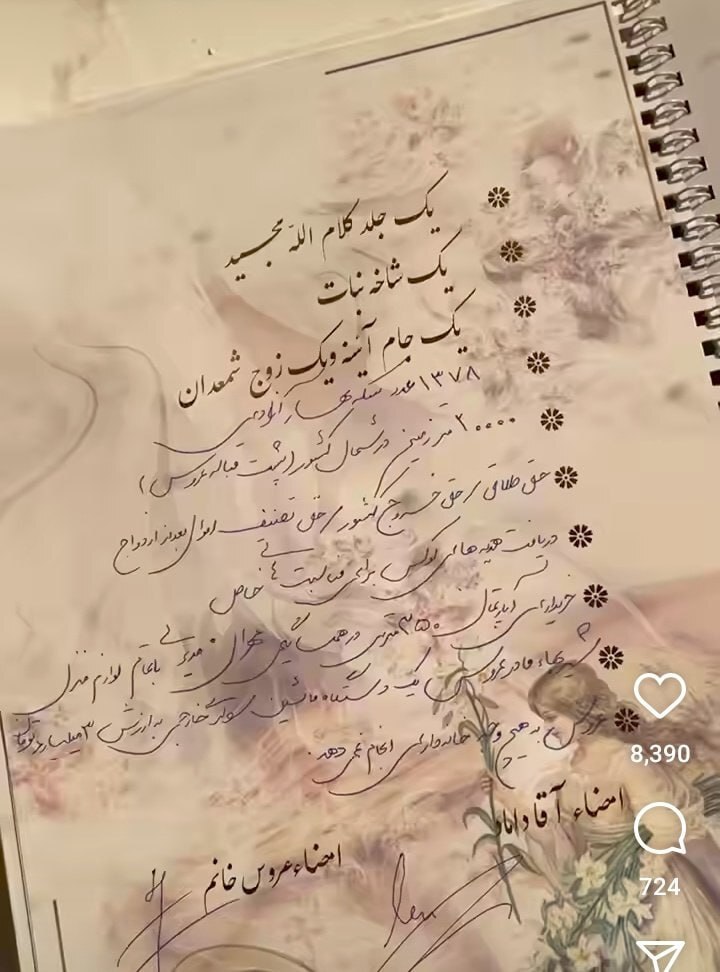 یک جلد کلام الله مجید
یک شاخه نبات
یک جام آئینه ویک زوج شمعدان
۱۳۷۸ عدد سکه بهار آزادی
۲۰۰۰۰ متر زمین در شمال کشور (پشت قباله عروس)
حق طلاق / حق خروج کشور / حق تصنیف اموال بعد از ازدواج
دریافت هدیه های لوکس برای مناسبت های خاص
خریداری آپارتمان ۳۵۰ متری در همسایگی باتمام لوازم منزل
شیربهاء مادر عروس یک دستگاه ماشین سواری خارجی به ارزش ۳ میلیارد تومان
عروس به هیچ وجه خانه داری انجام نمی دهد.
امضاء آقا داماد
امضاء عروس خانم
8,390
724